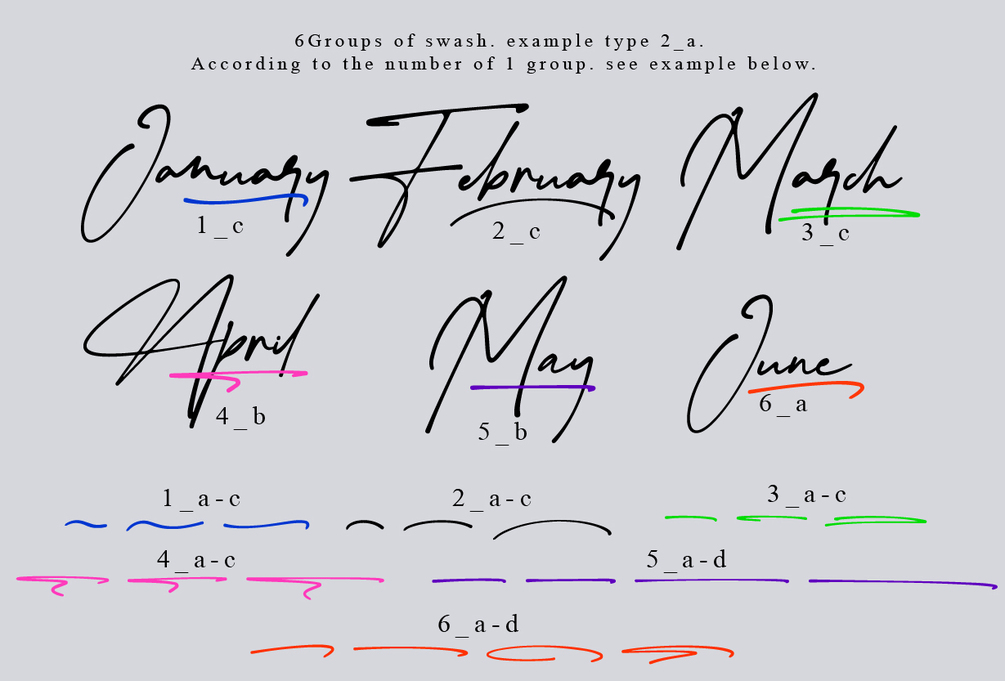 6Groups of swash. example type 2_a.
According to the number of 1 group. see example below.
January February March
1_c 2_c 3_c
April May June
4_b 5_b 6_a
1_a-c 2_a-c 3_a-c
4_a-c 5_a-d
6_a-d